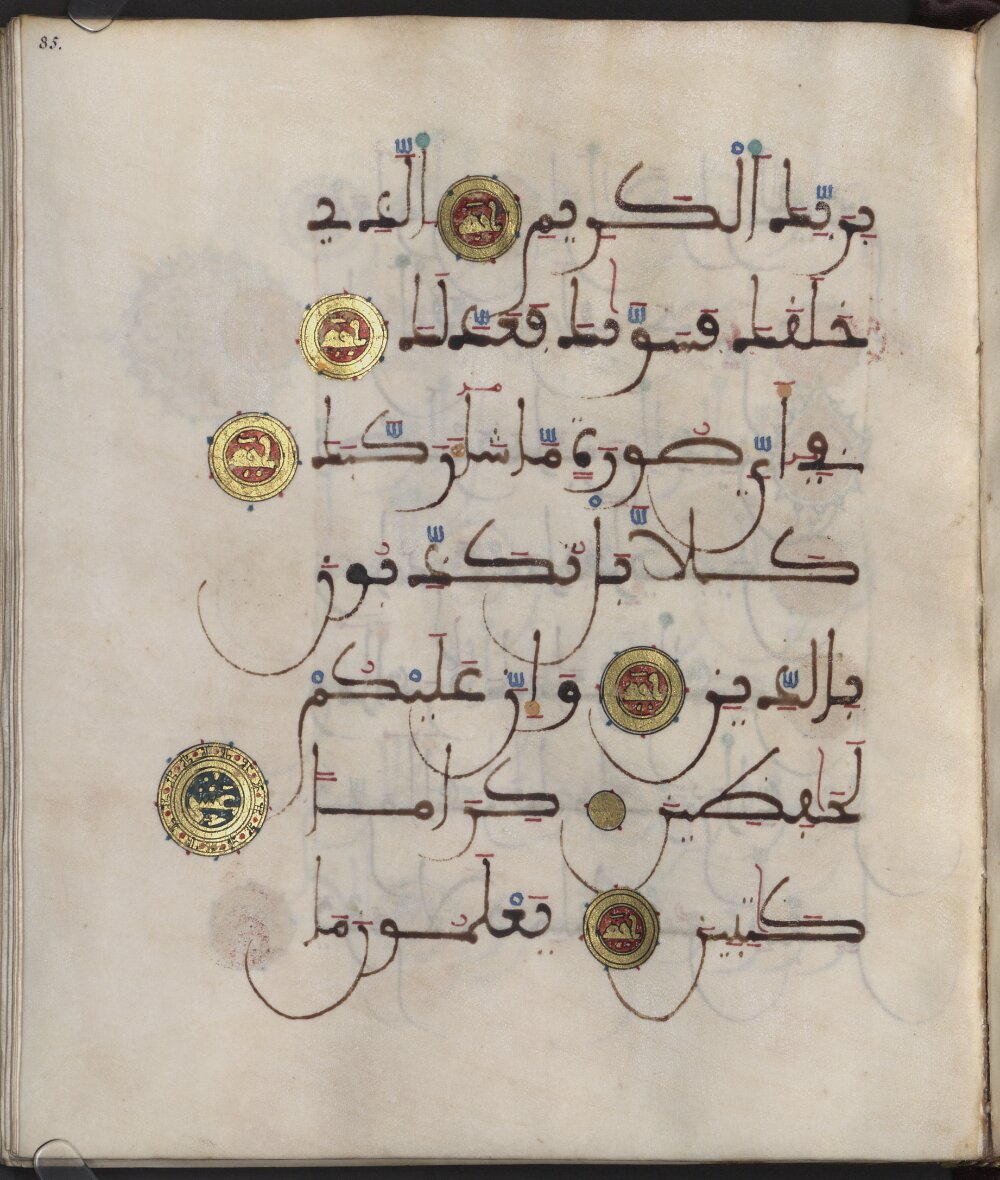 85.
بِرَبِّكَ ٱلْكَرِيمِ ٱلَّذِى
خَلَقَكَ فَسَوَّىٰكَ فَعَدَّلَكَ
فِىٓ أَىِّ صُورَةٍ مَّا شَآءَ رَكَّبَكَ
كَلَّا بَلْ تُكَذِّبُونَ
بِالدِّينِ وَإِنَّ عَلَيْكُمْ
لَحَٰفِظِينَ كِرَامًا
كَٰتِبِينَ يَعْلَمُونَ مَا